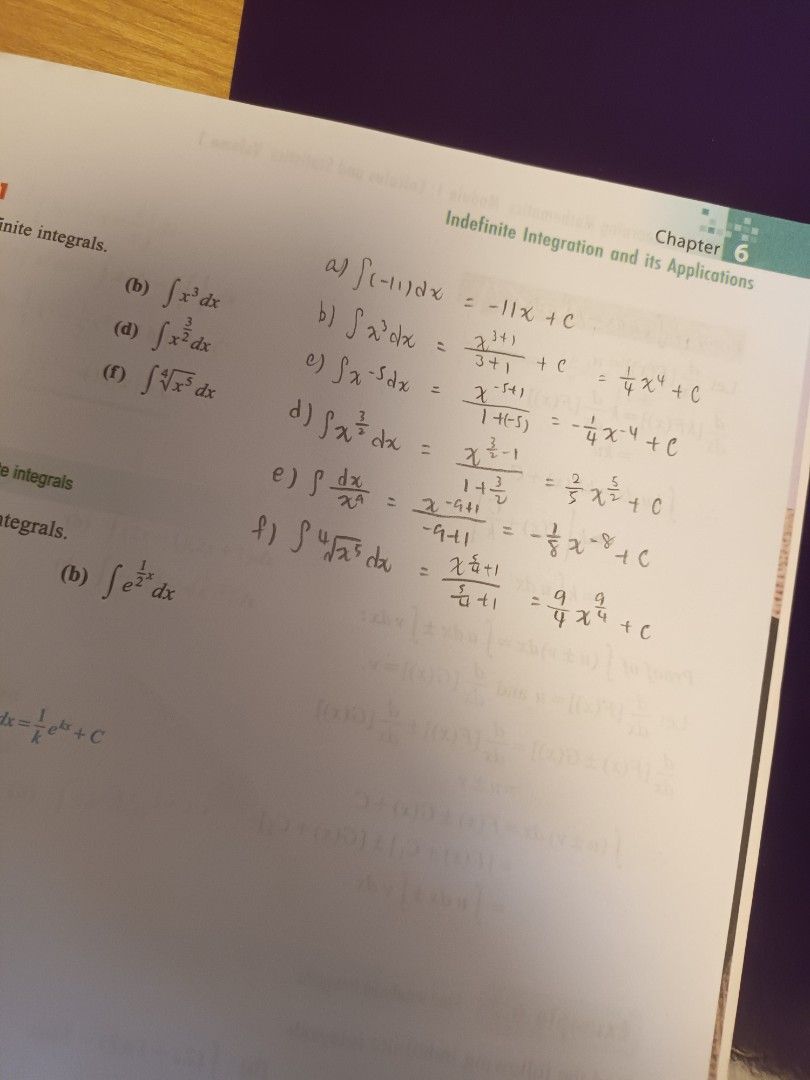 Chapter 6
Indefinite Integration and its Applications
1
inite integrals.
(b) ∫x³dx
(d) ∫x^{3/2}dx
(f) ∫⁴√x⁵ dx
e integrals
tegrals.
(b) ∫e^{½x}dx
dx = 1/k e^{kx} + C
a) ∫(-11)dx = -11x + C
b) ∫x³dx = x^{3+1}/(3+1) + C = ¼x⁴ + C
c) ∫x^{-5}dx = x^{-5+1}/(1+(-5)) = -¼x^{-4} + C
d) ∫x^{3/2}dx = x^{3/2-1}/(1+3/2) = 2/5 x^{5/2} + C
e) ∫dx/x⁹ = x^{-9+1}/(-9+1) = -1/8 x^{-8} + C
f) ∫⁴√x⁵ dx = x^{5/4+1}/(5/4+1) = 9/4 x^{9/4} + C